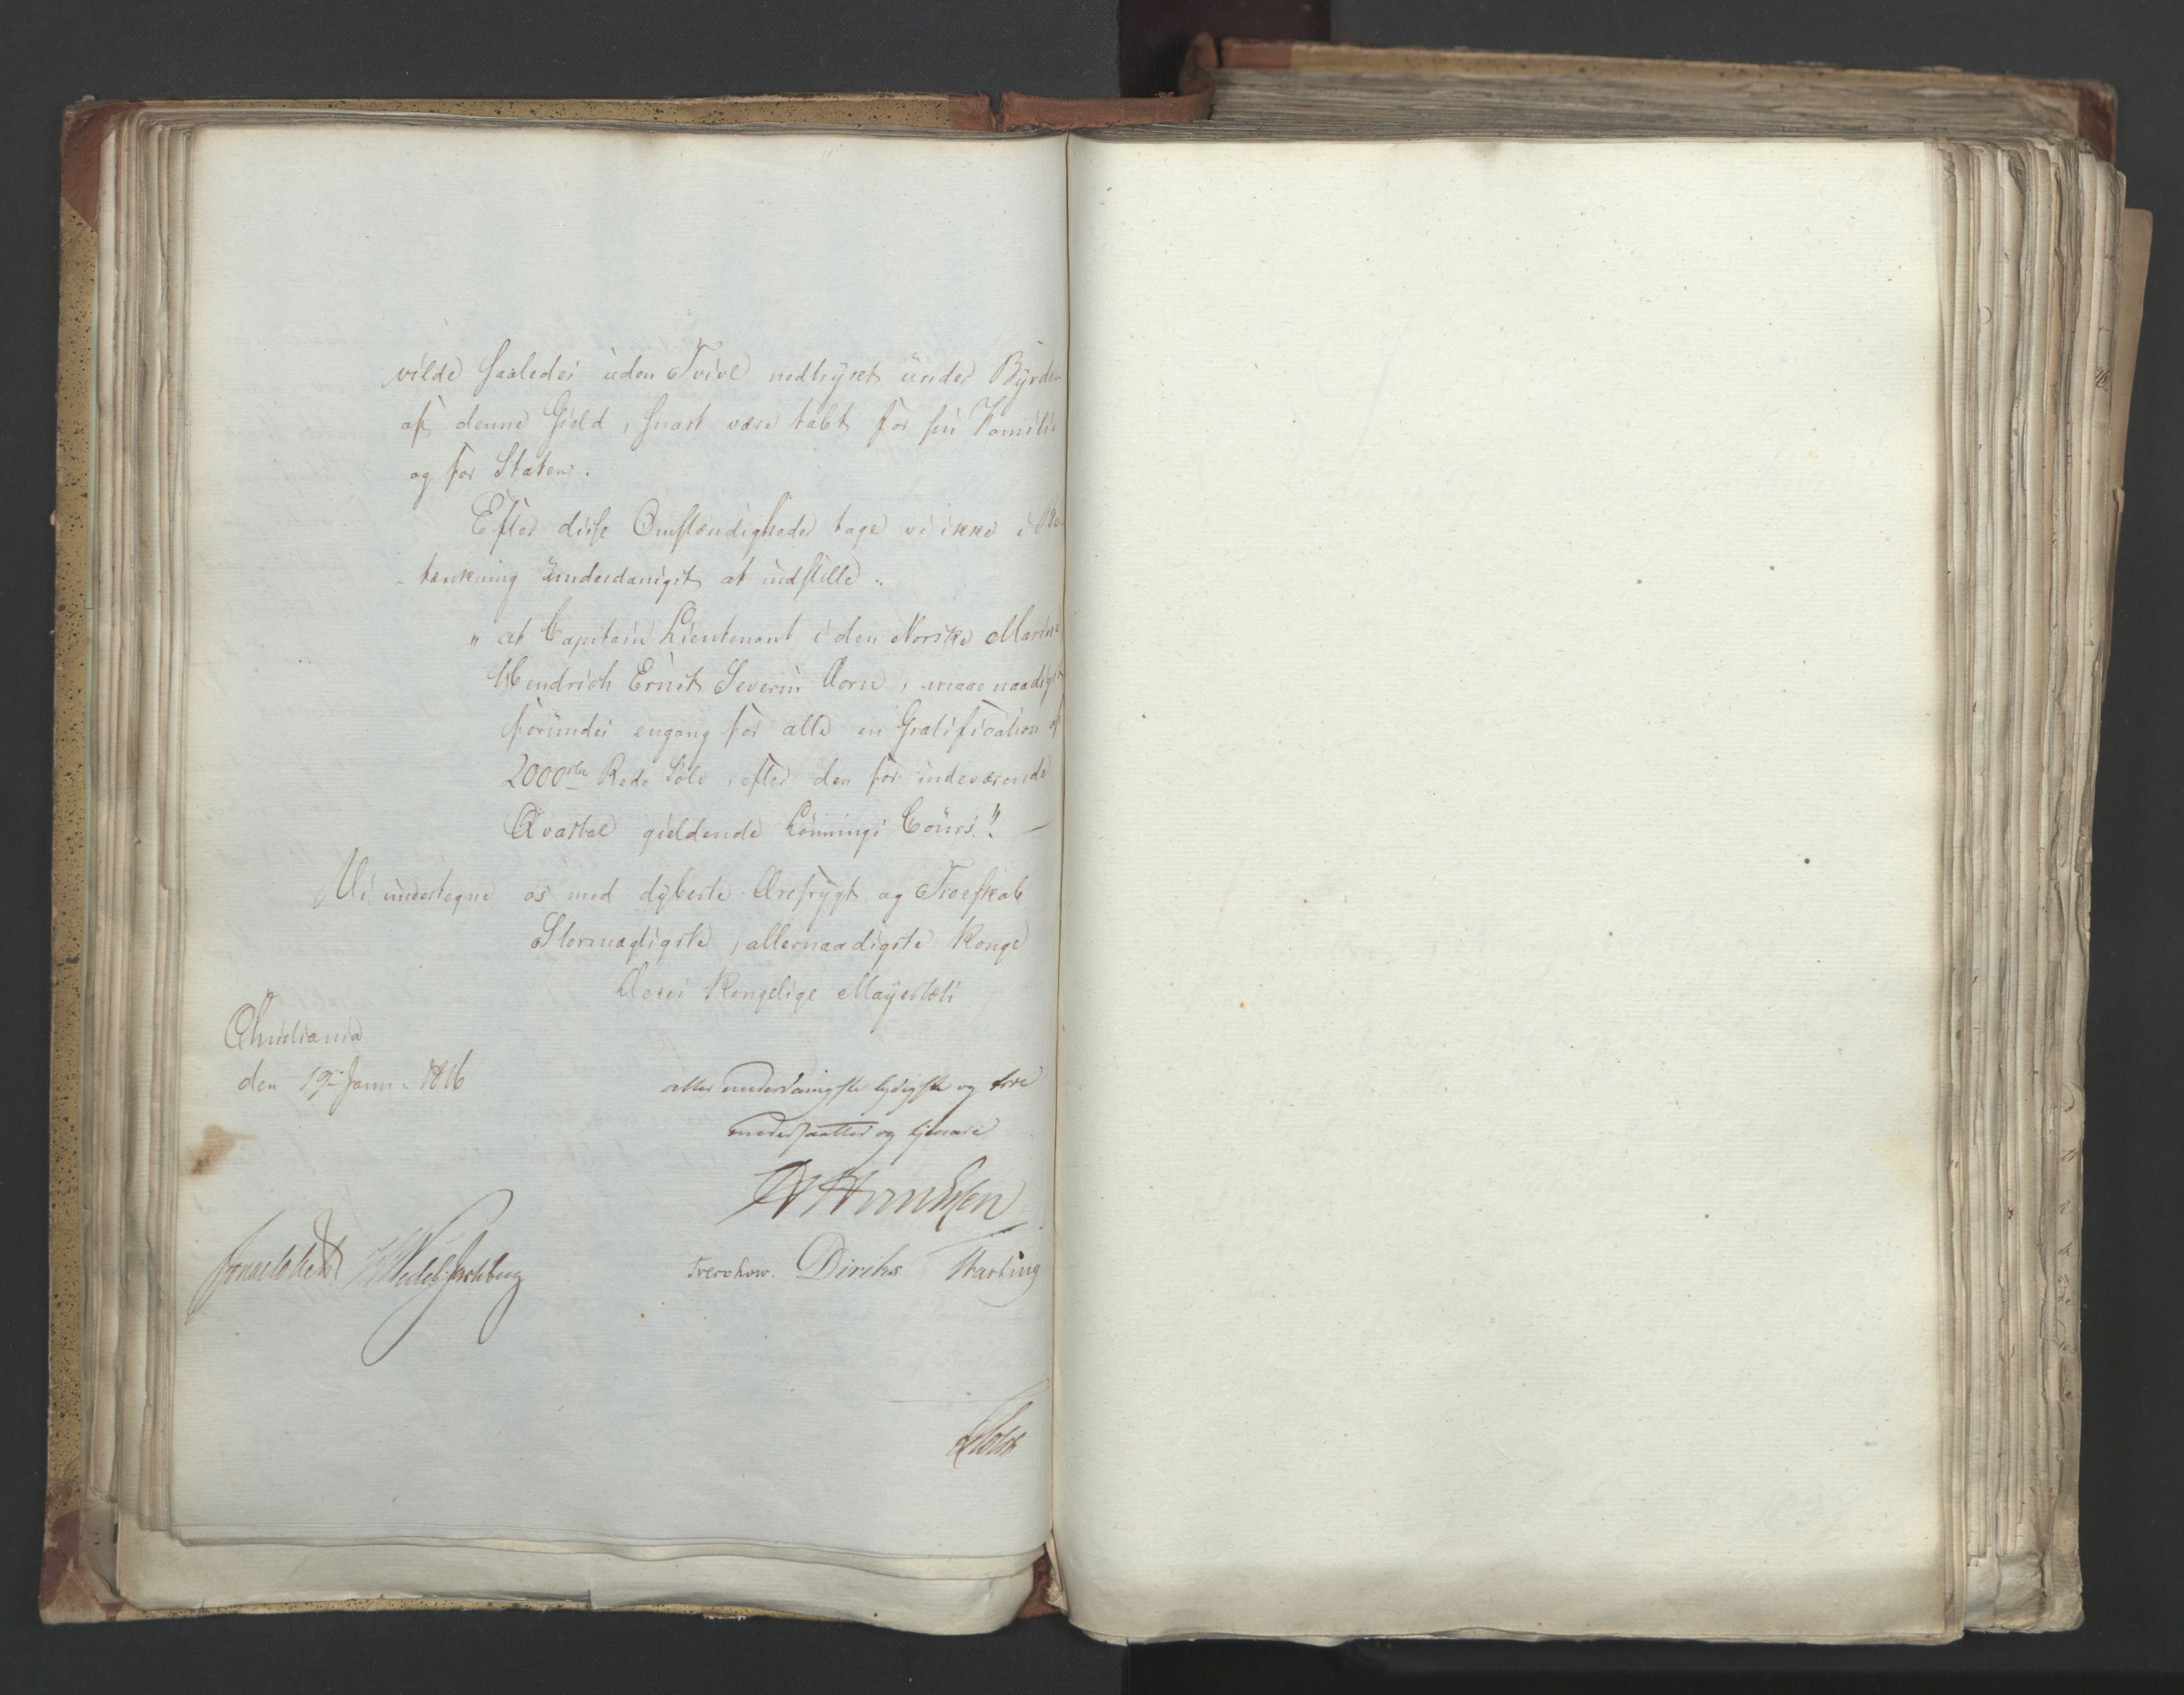 vilde saaledes uden Tvivl nedtrykt under Byrden
af denne Gield, snart være tabt for sin Familie
og for Staten.
Efter disse Omstændigheder tage vi ikke i Be
-tænkning underdanigst at indstille:
" at Capitain Lieutenant i den Norske Marine
Hendrich Ernst Severin Vorn, maae naadigst
forundes engang for alle en Gratification af
2000 rbr Rede Sölv, efter den for indeværende
Qvartal gieldende Lönnings Cours." —
Vi undertegne os med dybeste Ærefrygt og Troeskab
Stormægtigste, allernaadigste Konge
Deres Kongelige Mayestæts
Christiania
den 19de Janu: 1816
aller underdanigste lydigste og troe
undersaatter og tjenere
Jonas Collett HWedel Jarlsberg
Treschow. Diriks Krefting
Holst